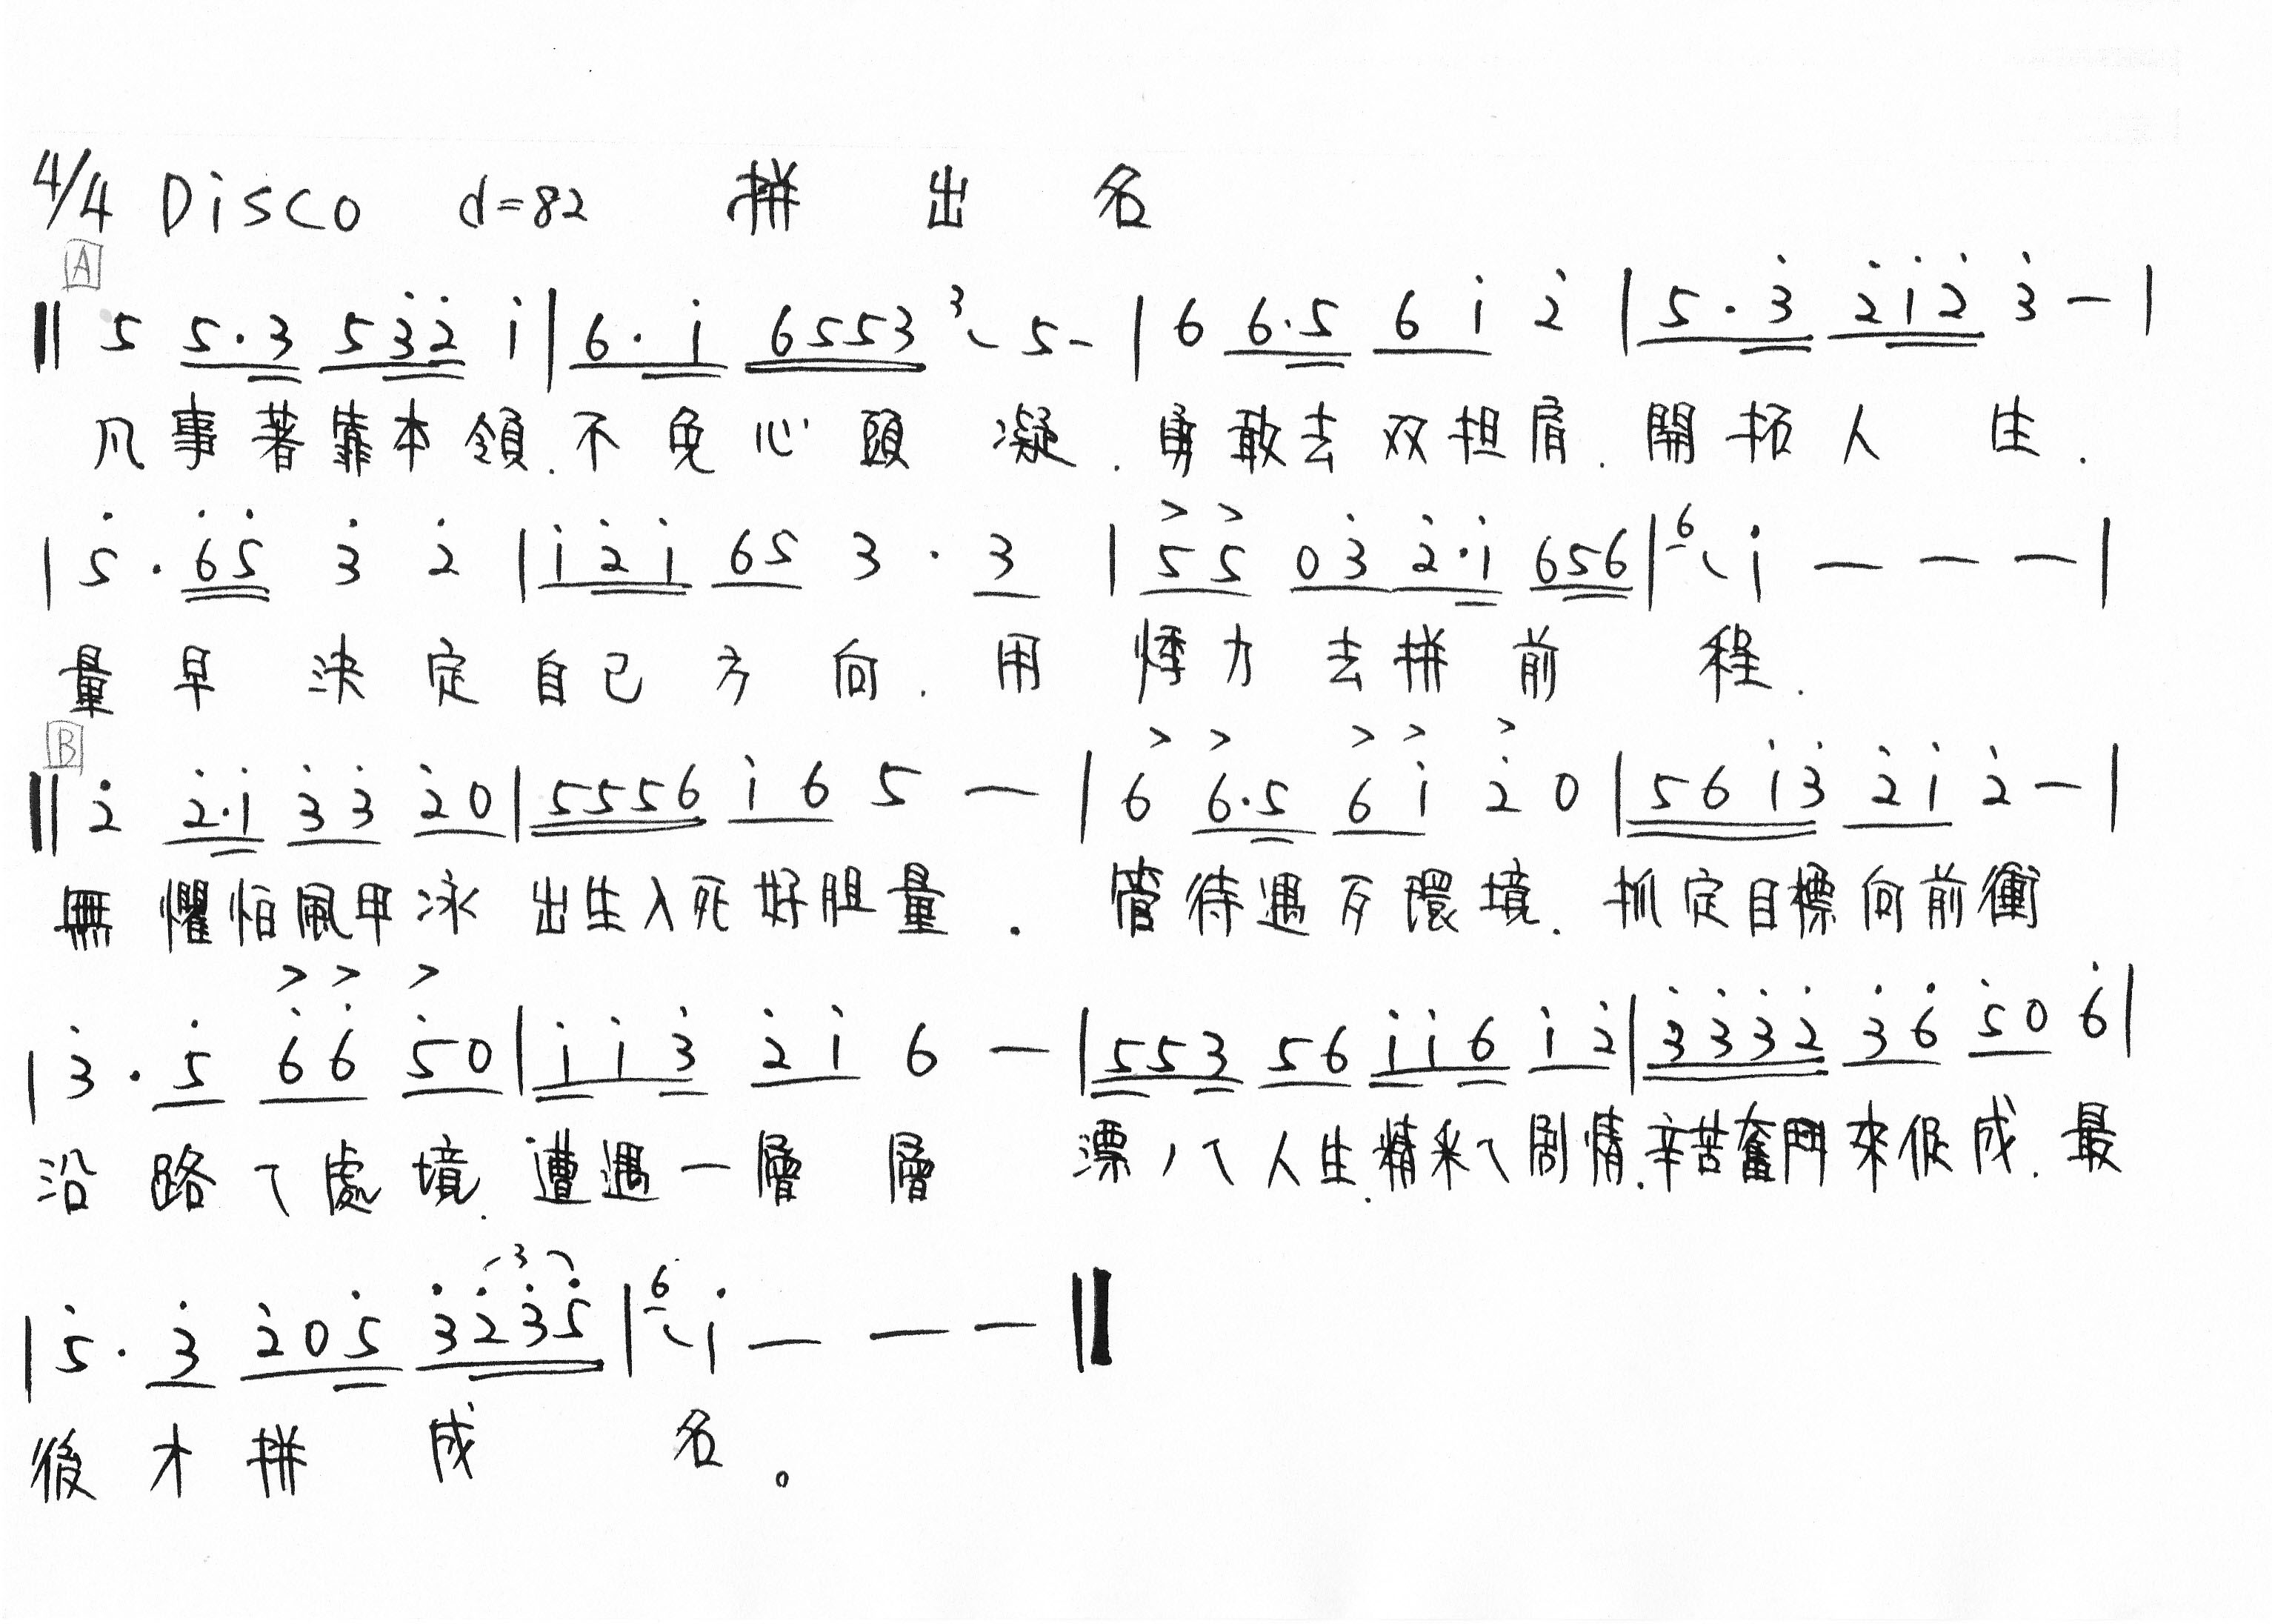 4/4 Disco d=82 拼 出 名
A
‖ 5 5·3 53̇2̇ i | 6·i 6553 ³ 5- | 6 6·5 6 i 2̇ | 5·3̇ 2̇i2̇ 3̇ – |
凡事著靠本領.不免心頭凝.勇敢去双担肩.開拓人生.
| 5̇·6̇5̇ 3̇ 2̇ | i2̇i 65 3·3 | 55 03̇ 2̇·i 656 | ⁶ i – – – |
量早決定自己方向.用 力去拼前程.
B
‖ 2̇ 2̇·i 3̇3̇ 2̇0 | 5556 i6 5 – | 6 6·5 6i 2̇ 0 | 56i3̇ 2̇i 2̇ – |
無懼怕風甲泳 出生入死好胆量. 管待遇 環境.抓定目標向前衝
| 3̇·5̇ 6̇6̇ 5̇0 | ii3̇ 2̇i 6 – | 553 56 ii6 i2̇ | 3̇3̇3̇2̇ 3̇6̇ 5̇0 6̇ |
沿路ㄟ處境.遭遇一層層 漂ノㄟ人生.精采ㄟ劇情.辛苦奮鬥來促成.最
| 5̇·3̇ 2̇05̇ 3̇2̇3̇5̇ | ⁶ i – – – ‖
後才拼成名。